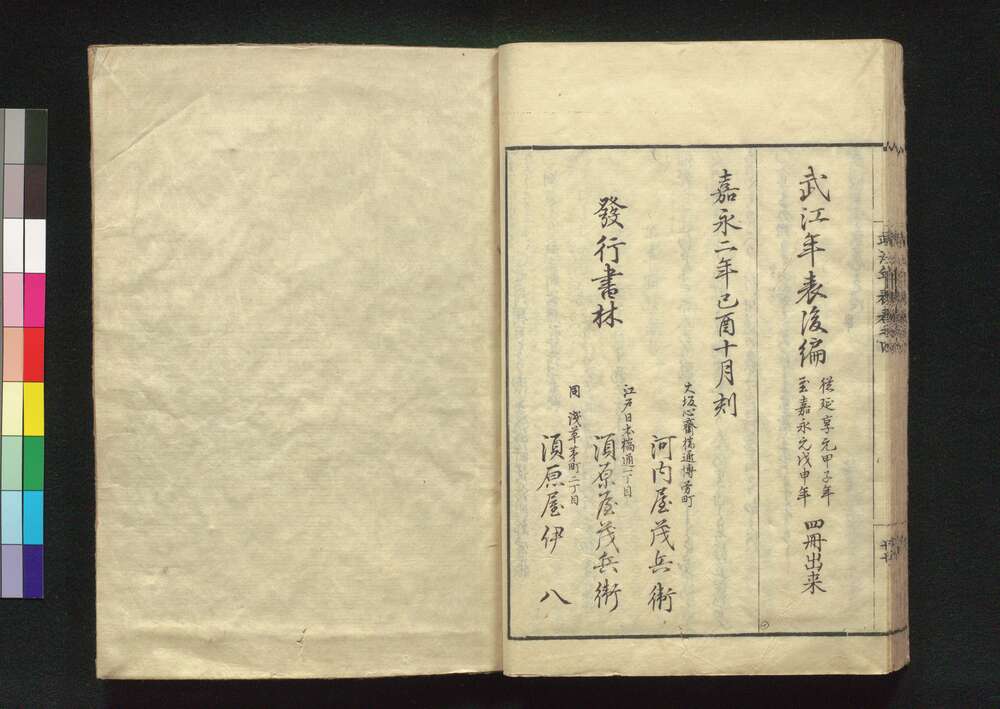 武江年表後編
從延享元甲子年
至嘉永元戊申年
四冊出来
嘉永二年己酉十月刻
發行書林
大坂心齋橋通博労町
河内屋茂兵衛
江戸日本橋通一丁目
須原屋茂兵衛
同 淺草茅町二丁目
須原屋伊八